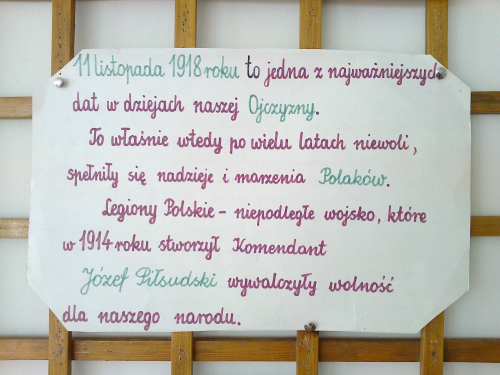 11 listopada 1918 roku to jedna z najważniejszych
dat w dziejach naszej Ojczyzny.
To właśnie wtedy po wielu latach niewoli,
spełniły się nadzieje i marzenia Polaków.
Legiony Polskie - niepodległe wojsko, które
w 1914 roku stworzył Komendant
Józef Piłsudski wywalczyły wolność
dla naszego narodu.